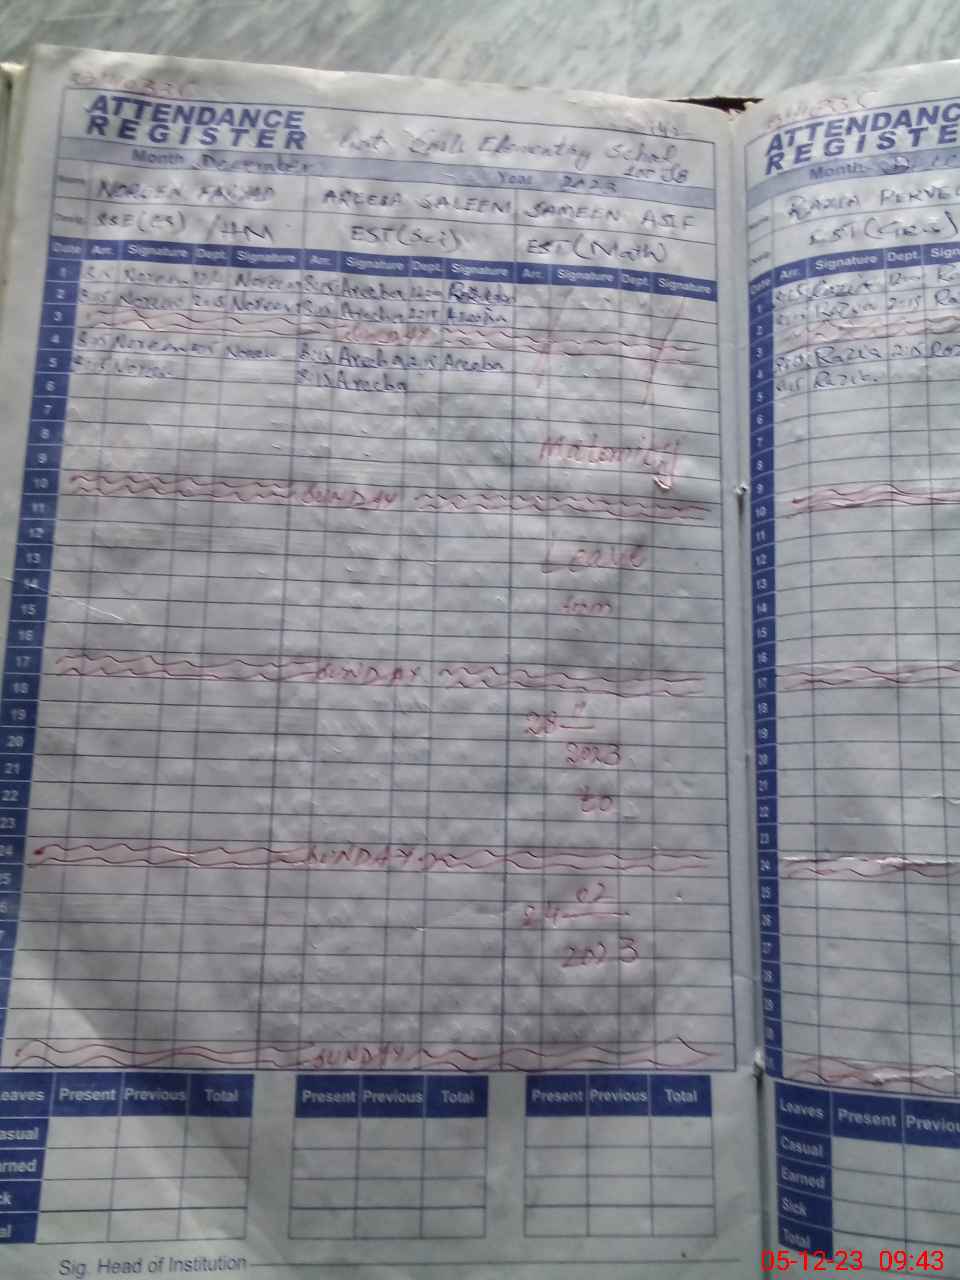 ATTENDANCE
REGISTER
Govt. Girls Elementary School
Month December Year 2023
Name NOREEN
AREEBA SALEEM
SAMEEN ASIF
SSE(ES) /HM
EST(Sci)
EST(Math)
Date Arr. Signature Dept. Signature Arr. Signature Dept. Signature Arr. Signature Dept. Signature
1 8:15 Noreen Noreen 8:15 Areeba 12:00
2 8:15 Noreen 2:15 Noreen 8:15 Areeba 2:15 Areeba
3 SUNDAY
4 8:15 Noreen 2:15 Noreen 8:15 Areeba 2:15 Areeba
5 8:15 Noreen 8:15 Areeba
6
7
8 Maternity
9
10 SUNDAY
11
12
13 Leave
14
15 from
16
17 SUNDAY
18
19 28 11
20 2023
21
22 to
23
24 SUNDAY
25
26 02
2023
SUNDAY
Leaves Present Previous Total
Present Previous Total
Present Previous Total
Casual
Earned
Sick
Total
Sig. Head of Institution
ATTENDANCE
REGISTE
Month
RAZIA PERVE
Date Arr. Signature Dept. Sig
1 8:15 Razia 12:00 Ra
2 8:15 Razia 2:15 Ra
3
4 8:15 Razia 2:15 Raz
5 8:15 Razia
6
7
8
9
10
11
12
13
14
15
16
17
18
19
20
21
22
23
24
25
26
27
28
29
30
Leaves Present Previou
Casual
Earned
Sick
Total
05-12-23 09:43